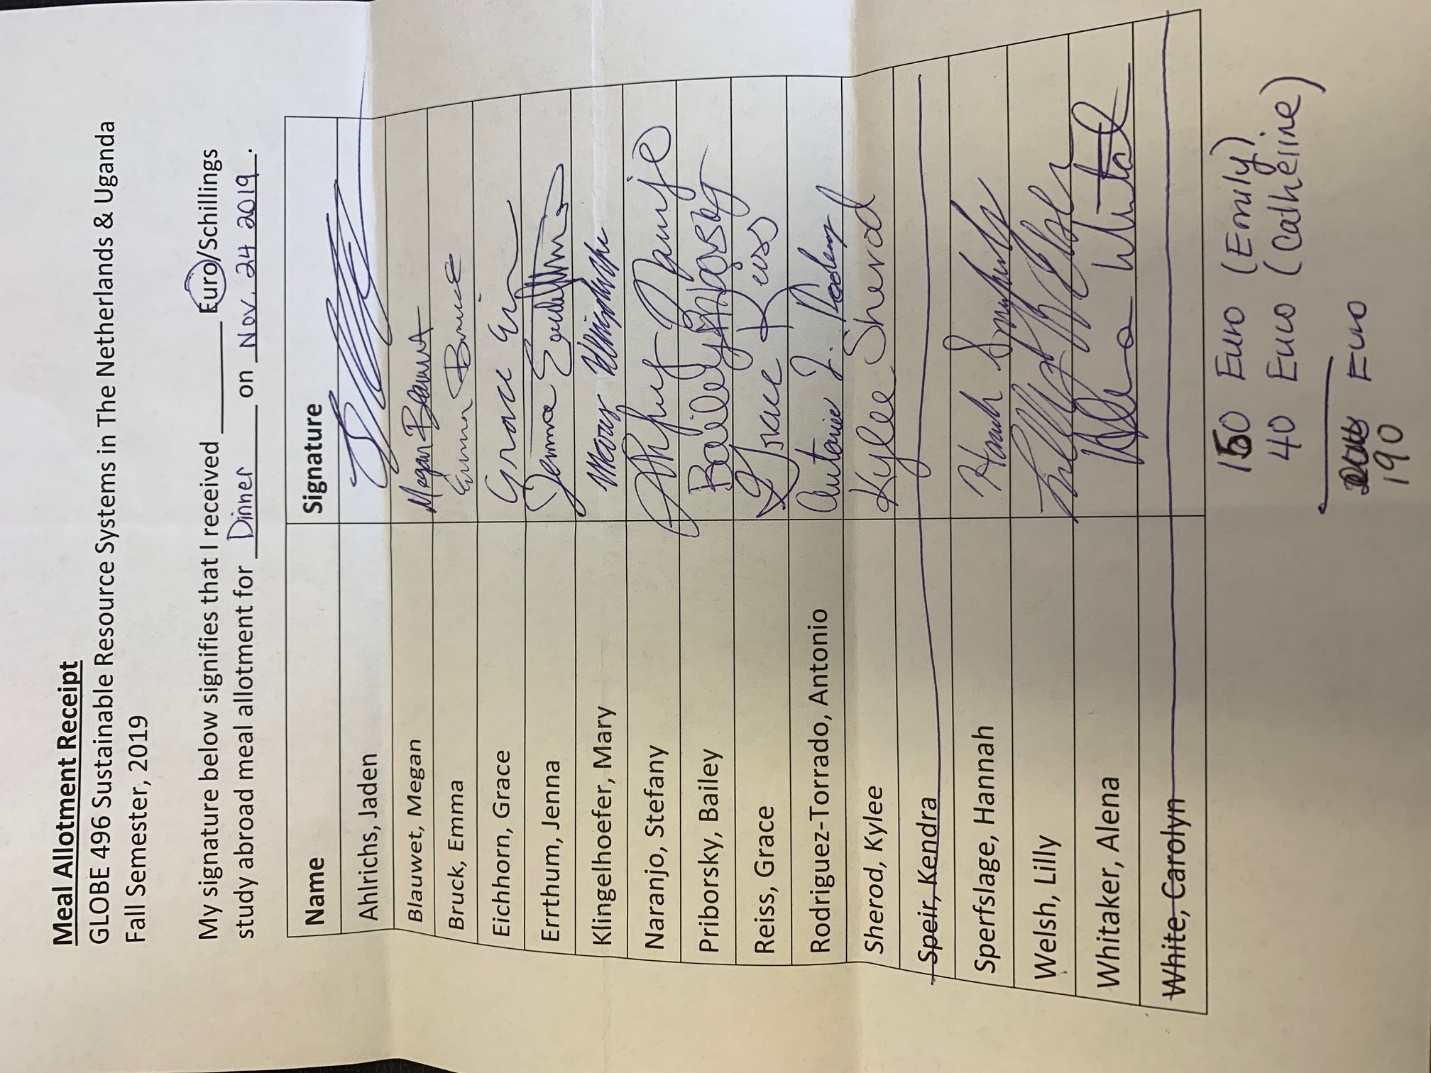 Meal Allotment Receipt
GLOBE 496 Sustainable Resource Systems in The Netherlands & Uganda
Fall Semester, 2019
My signature below signifies that I received ________ Euro/Schillings
study abroad meal allotment for Dinner on Nov. 24 2019.
Name Signature
Ahlrichs, Jaden
Blauwet, Megan Megan Blauwet
Bruck, Emma Emma Bruck
Eichhorn, Grace Grace
Errthum, Jenna Jenna
Klingelhoefer, Mary Mary
Naranjo, Stefany Naranjo
Priborsky, Bailey Bailey Priborsky
Reiss, Grace Grace Reiss
Rodriguez-Torrado, Antonio Antonio J.
Sherod, Kylee Kylee Sherod
Speir, Kendra
Sperfslage, Hannah Hannah
Welsh, Lilly
Whitaker, Alena Alena
White, Carolyn
150 Euro (Emily)
40 Euro (Catherine)
Euro
190